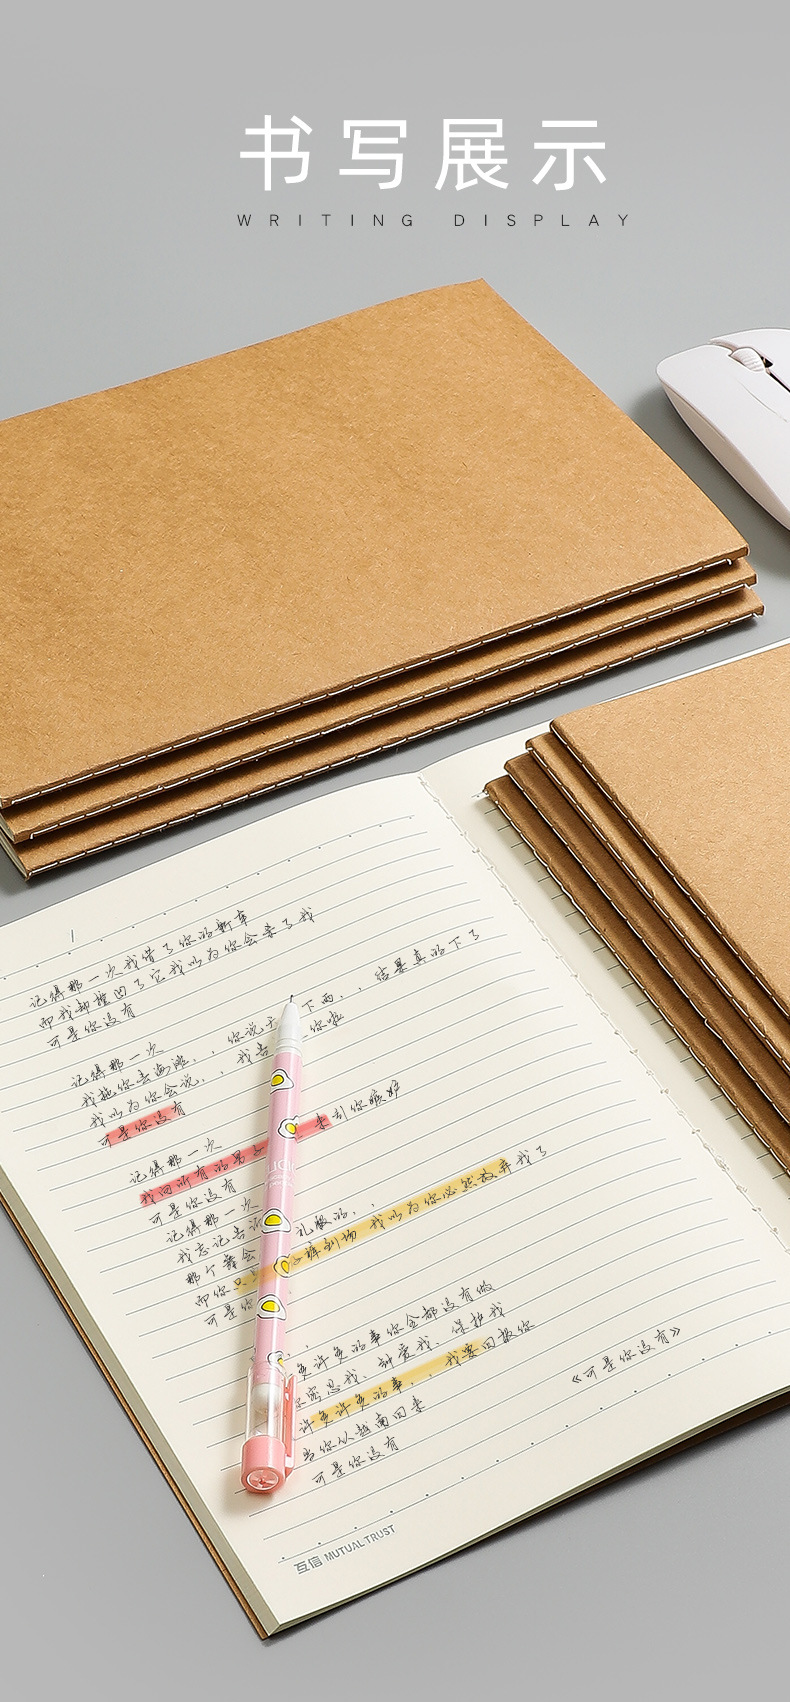 书写展示
WRITING DISPLAY
记得那一次我借了你的新车
而我却撞凹了它我以为你会杀了我
可是你没有
记得那一次
我拖你去海滩，，你说天 下雨，，结果真的下了
我以为你会说，，我告 你啦
可是你没有
记得那一次
我向所有的男 来引你嫉妒
可是你没有
记得那一次
我忘记告诉 礼服的，，
那个舞会 裤到场 我以为你必然放弃我了
而你只
可是你
许多的事你全都没有做
你容忍我、钟爱我、保护我
许多许多的事，，我要回报你
当你从越南回来
可是你没有
《可是你没有》
互信 MUTUAL TRUST